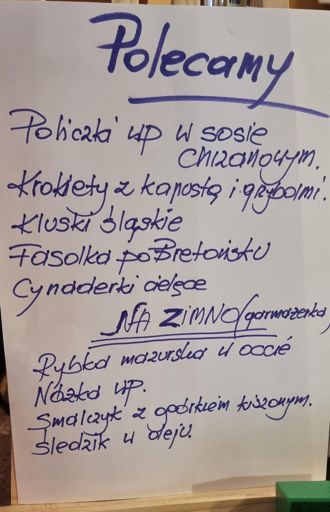 Polecamy
Policzki wp w sosie
chrzanowym.
Krokiety z kapustą i grzybami.
Kluski śląskie
Fasolka po Bretońsku
Cynaderki cielęce
NA ZIMNO (garmażerka)
Rybka mazurska w occie
Nóżka wp.
Smalczyk z ogórkiem kiszonym.
Śledzik w oleju.